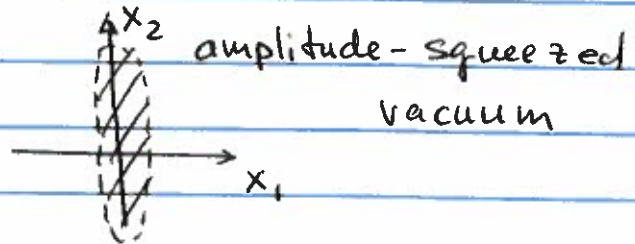 X₂
amplitude-squeezed
vacuum
X₁